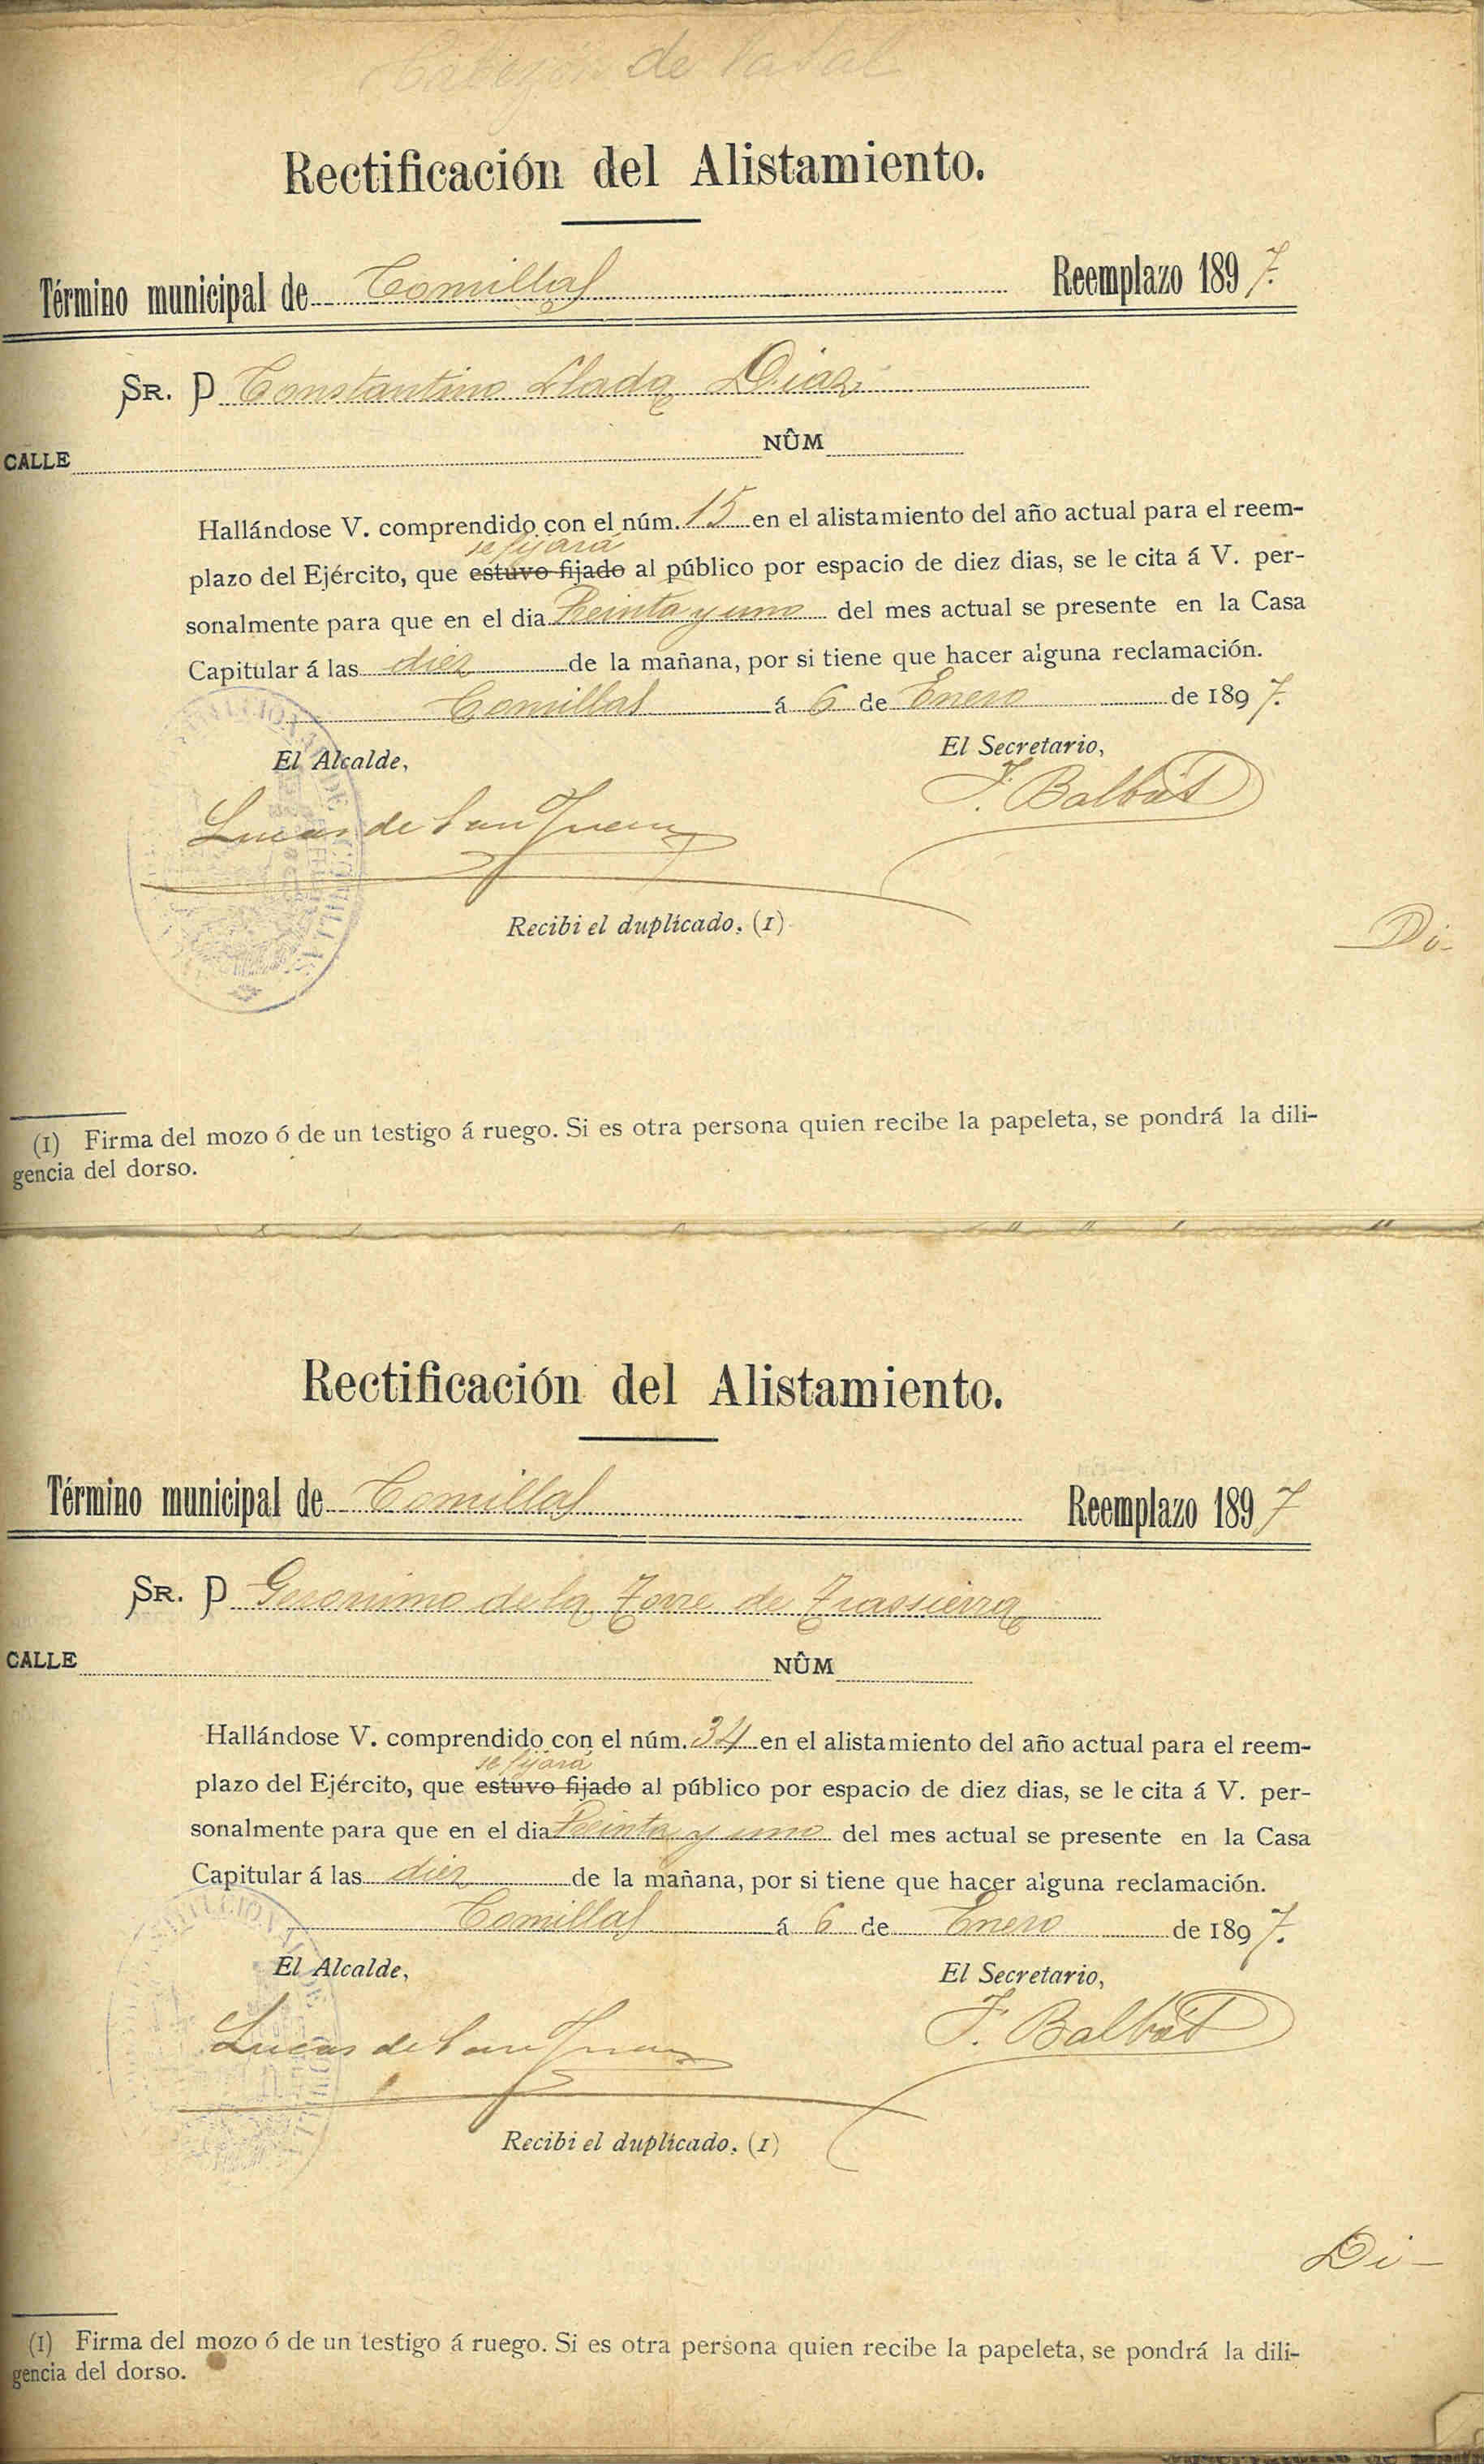 Cabezón de la Sal
Rectificación del Alistamiento.
Término municipal de Comillas Reemplazo 1897.
SR. D Constantino Llada Diaz
CALLE NÚM
Hallándose V. comprendido con el núm. 15 en el alistamiento del año actual para el reem-
se fijará
plazo del Ejército, que estuvo fijado al público por espacio de diez dias, se le cita á V. per-
sonalmente para que en el dia treinta y uno del mes actual se presente en la Casa
Capitular á las diez de la mañana, por si tiene que hacer alguna reclamación.
Comillas á 6 de Enero de 1897.
El Alcalde, El Secretario,
Lucas de San Juan F. Balbás
Recibi el duplicado. (1)
Di-
(1) Firma del mozo ó de un testigo á ruego. Si es otra persona quien recibe la papeleta, se pondrá la dili-
gencia del dorso.
Rectificación del Alistamiento.
Término municipal de Comillas Reemplazo 1897
SR. D Geronimo de la Torre de Trassierra
CALLE NÚM
Hallándose V. comprendido con el núm. 34 en el alistamiento del año actual para el reem-
se fijará
plazo del Ejército, que estuvo fijado al público por espacio de diez dias, se le cita á V. per-
sonalmente para que en el dia treinta y uno del mes actual se presente en la Casa
Capitular á las diez de la mañana, por si tiene que hacer alguna reclamación.
Comillas á 6 de Enero de 1897.
El Alcalde, El Secretario,
Lucas de San Juan F. Balbás
Recibi el duplicado. (1)
Di-
(1) Firma del mozo ó de un testigo á ruego. Si es otra persona quien recibe la papeleta, se pondrá la dili-
gencia del dorso.